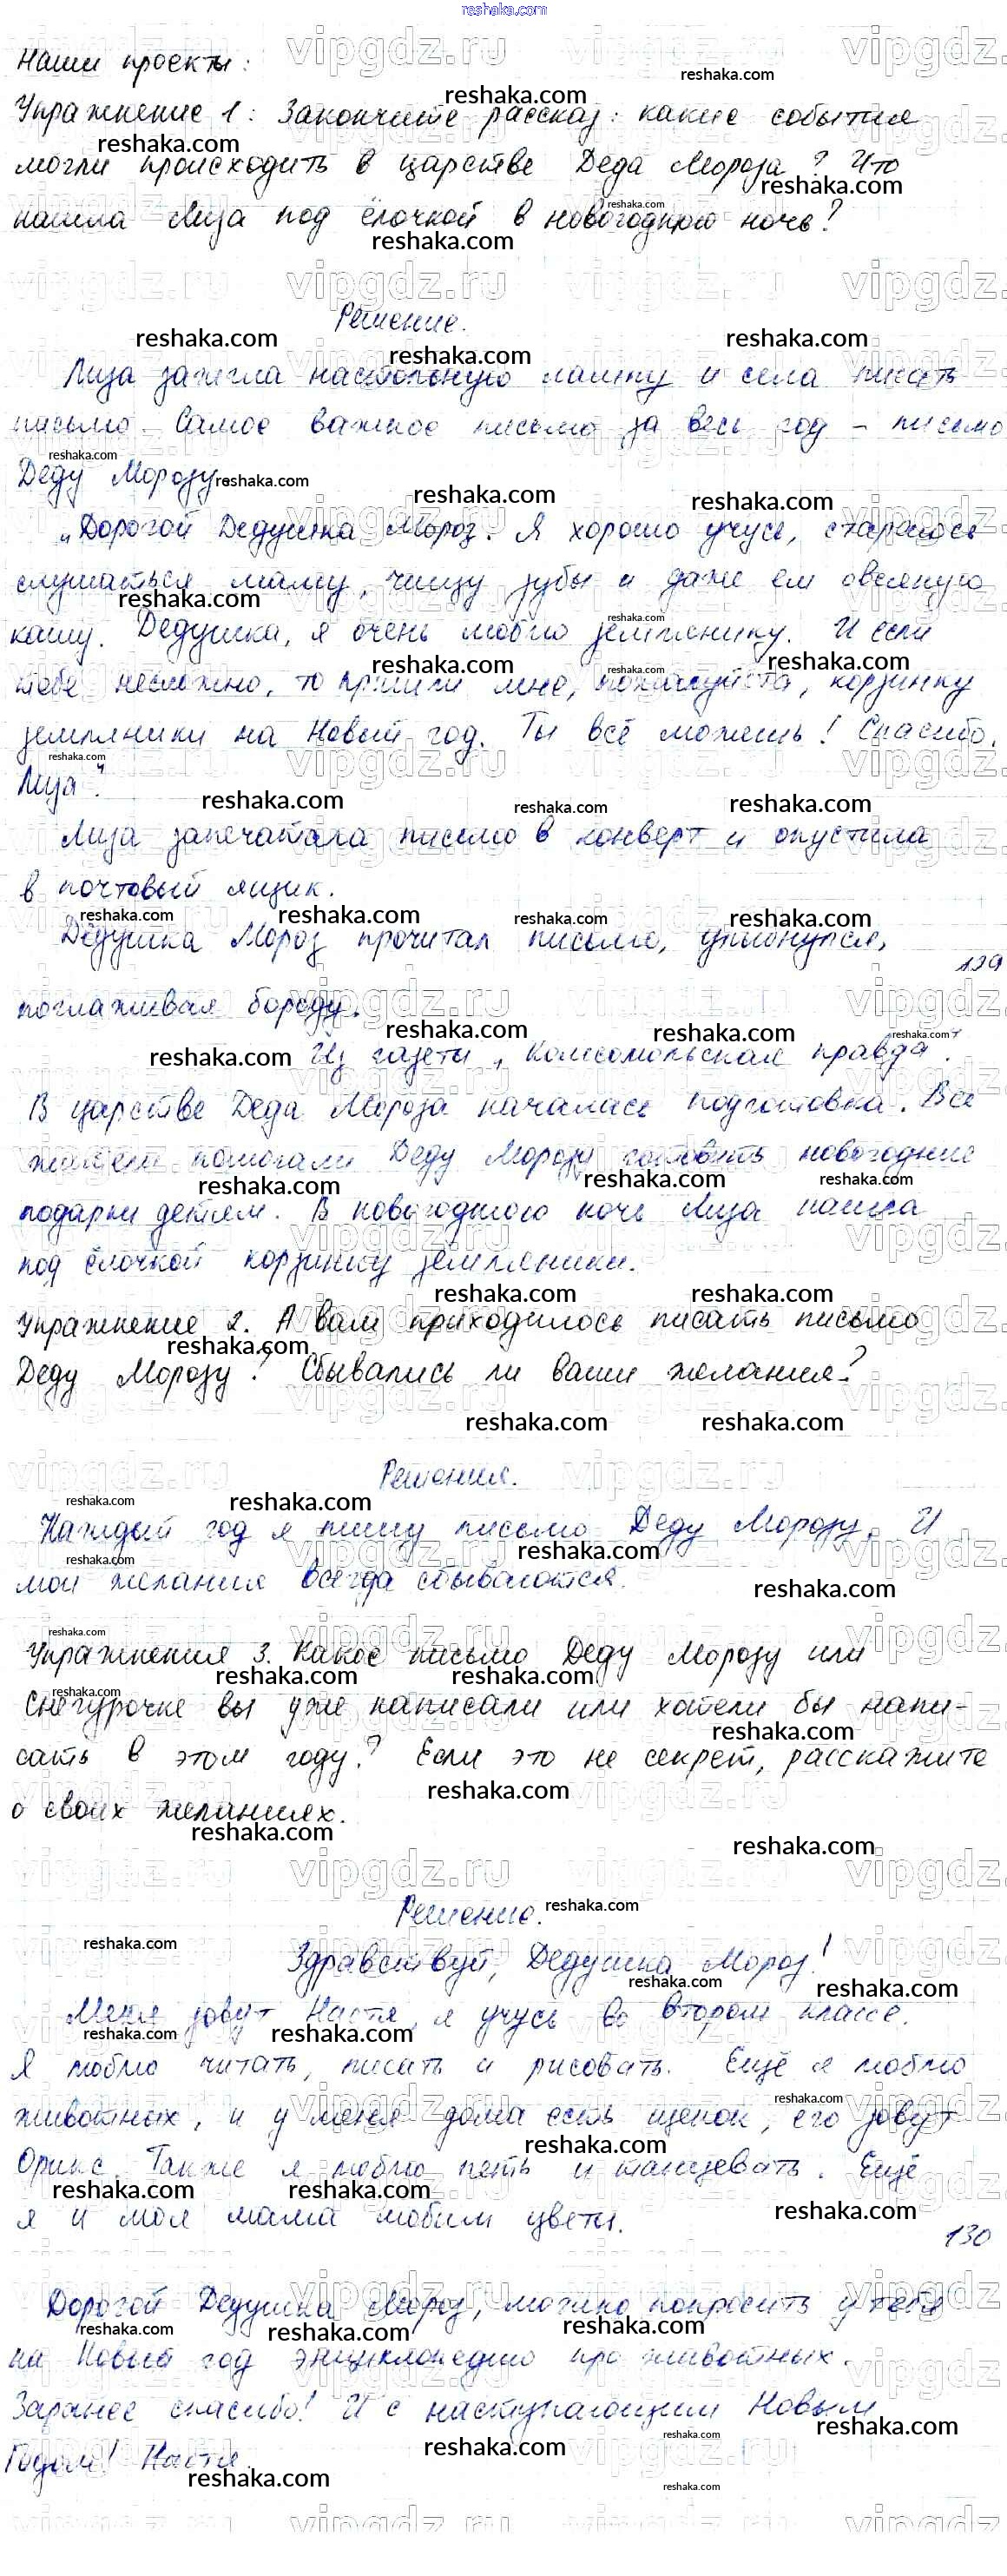 reshaka.com
Наши проекты:
Упражнение 1: Закончите рассказ: какие события
могли происходить в царстве Деда Мороза? Что
нашла Лиза под ёлочкой в новогоднюю ночь?
Решение.
Лиза зажгла настольную лампу и села писать
письмо. Самое важное письмо за весь год – письмо
Деду Морозу.
„Дорогой Дедушка Мороз. Я хорошо учусь, стараюсь
слушаться маму, чищу зубы и даже ем овсяную
кашу. Дедушка, я очень люблю землянику. И если
тебе несложно, то пришли мне, пожалуйста, корзинку
земляники на Новый год. Ты всё можешь! Спасибо.
Лиза".
Лиза запечатала письмо в конверт и опустила
в почтовый ящик.
Дедушка Мороз прочитал письмо, улыбнулся,
129
поглаживая бороду.
Из газеты „Комсомольская правда".
В царстве Деда Мороза началась подготовка. Все
помогали Деду Морозу готовить новогодние
подарки детям. В новогоднюю ночь Лиза нашла
под ёлочкой корзинку земляники.
Упражнение 2. А вам приходилось писать письмо
Деду Морозу? Сбывались ли ваши желания?
Решения.
Каждый год я пишу письмо Деду Морозу. И
мои желания всегда сбываются.
Упражнения 3. Какое письмо Деду Морозу или
Снегурочке вы уже написали или хотели бы напи-
сать в этом году? Если это не секрет, расскажите
о своих желаниях.
Решение.
Здравствуй, Дедушка Мороз!
Меня зовут Настя, я учусь во втором классе.
Я люблю читать, писать и рисовать. Ещё я люблю
животных, и у меня дома есть щенок, его зовут
Также я люблю петь и танцевать. Ещё
я и моя мама любим цветы.
130
Дорогой Дедушка Мороз, можно попросить у тебя
на Новый год энциклопедию про животных.
Заранее спасибо! И с наступающим Новым
Годом! Настя.